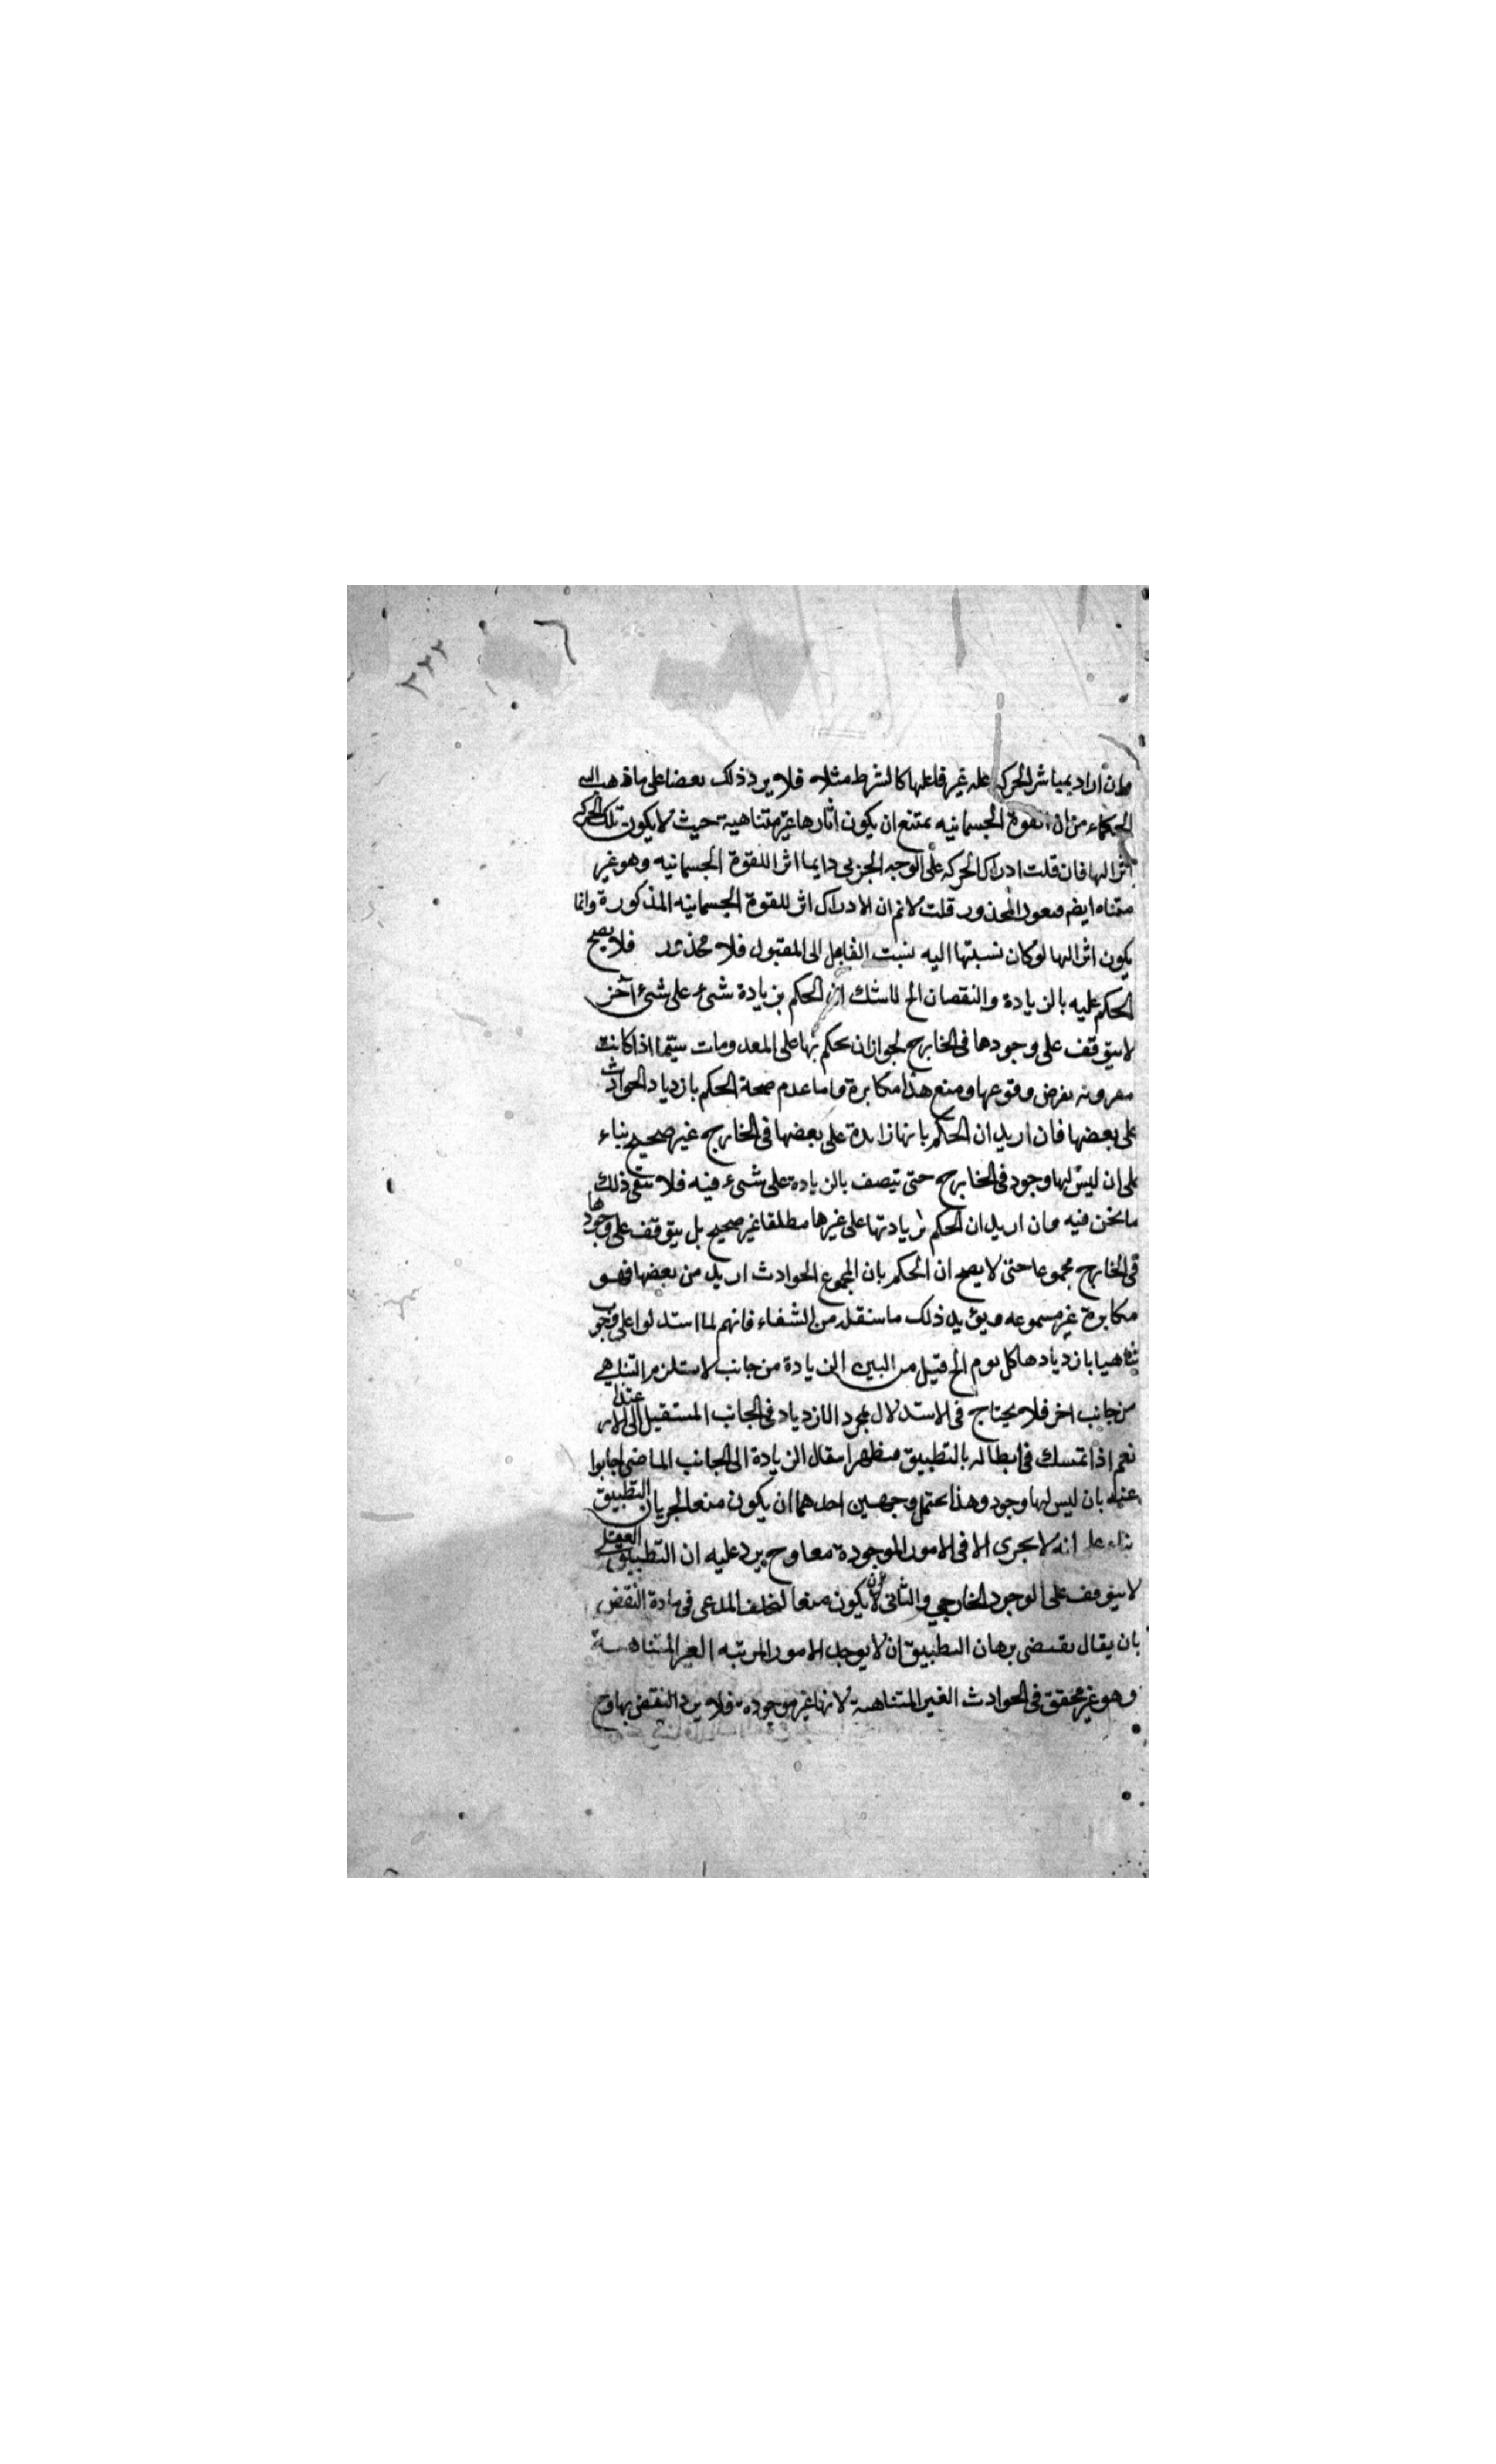 ٣٢٢
وان اراد بمباشر الحركه عله غير فاعلها كالشرط مثلا فلا يرد ذلك نقضا على ما ذهب اليه
الحكماء من ان القوة الجسمانيه يمتنع ان يكون اثارها غير متناهية حيث لا يكون تلك الحركه
اثرا لها فان قلت ادراك الحركه على الوجه الجزيى دايما اثر للقوة الجسمانيه وهو غير
متناه ايضم فيعود المحذور قلت لانم ان الادراك اثر للقوة الجسمانيه المذكورة وانما
يكون اثرا لها لو كان نسبتها اليه نسبت الفاعل الى المقبول فلا محذور فلا يصح
الحكم عليه بالزيادة والنقصان الخ لا شك ان الحكم بزيادة شىء على شىء آخر
لا يتوقف على وجودها فى الخارج لجواز ان يحكم بها على المعدومات سيّما اذا كانت
مقرونه بفرض وقوعها ومنع هذا مكابرة واما عدم صحة الحكم بازدياد الحوادث
على بعضها فان اريد ان الحكم بانها زايدة على بعضها فى الخارج غير صحيح بناء
على ان ليس لها وجود فى الخارج حتى يتصف بالزيادة على شىء فيه فلا ينفى ذلك
ما نحن فيه وان اريد ان الحكم بزيادتها على غيرها مطلقا غير صحيح بل يتوقف على وجودها
فى الخارج مجموعا حتى لا يصح ان الحكم بان المجموع الحوادث ازيد من بعضها فهو
مكابرة غير مسموعه ويؤيد ذلك ما سنقله من الشفاء فانهم لما استدلوا على وجوب
تناهيها بازديادها كل يوم الخ قيل من البين الزيادة من جانب لا يستلزم التناهى
من جانب اخر فلا يحتاج فى الاستدلال بمجرد الازدياد فى الجانب المستقبل الى
نعم اذا تمسك فى ابطاله بالتطبيق مظهرا مقال الزيادة الى الجانب الماضى اجابوا
عنه بان ليس لها وجود وهذا يحتمل وجهين احدهما ان يكون منعا لجريان التطبيق
بناء على انه لا يجرى الا فى الامور الموجودة معا وح يرد عليه ان التطبيق العقلى
لا يتوقف على الوجود الخارجي والثانى ان يكون منعا لتخلف المدعى فى مادة النقض
بان يقال يقتضى برهان التطبيق ان لا يوجد الامور المرتبه الغير المتناهية
وهو غير محقق فى الحوادث الغير المتناهية لانها غير موجوده فلا يرد النقض بها وح